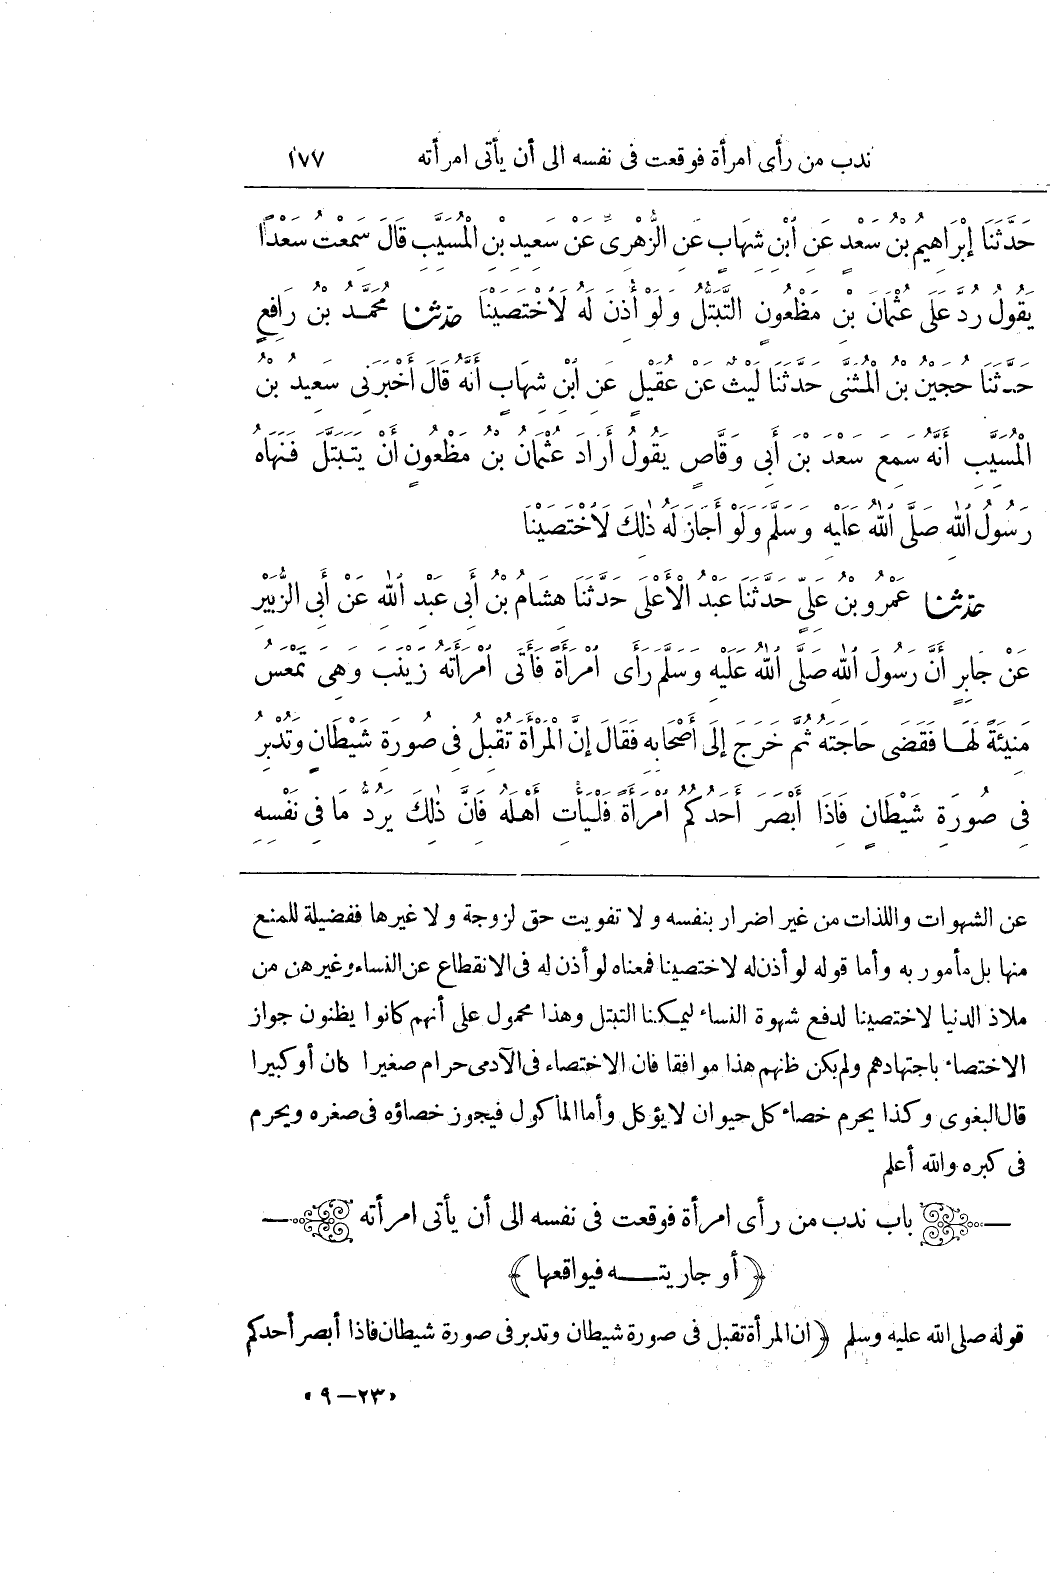 ندب من رأى امرأة فوقعت فى نفسه الى أن يأتى امرأته ١٧٧
حَدَّثَنَا إِبْرَاهِيمُ بْنُ سَعْدٍ عَنِ ابْنِ شِهَابٍ عَنِ الزُّهْرِىِّ عَنْ سَعِيدِ بْنِ الْمُسَيَّبِ قَالَ سَمِعْتُ سَعْدًا
يَقُولُ رُدَّ عَلَى عُثْمَانَ بْنِ مَظْعُونٍ التَّبَتُّلُ وَلَوْ أُذِنَ لَهُ لَاخْتَصَيْنَا حَدَّثَنَا مُحَمَّدُ بْنُ رَافِعٍ
حَدَّثَنَا حُجَيْنُ بْنُ الْمُثَنَّى حَدَّثَنَا لَيْثٌ عَنْ عُقَيْلٍ عَنِ ابْنِ شِهَابٍ أَنَّهُ قَالَ أَخْبَرَنِى سَعِيدُ بْنُ
الْمُسَيَّبِ أَنَّهُ سَمِعَ سَعْدَ بْنَ أَبِى وَقَّاصٍ يَقُولُ أَرَادَ عُثْمَانُ بْنُ مَظْعُونٍ أَنْ يَتَبَتَّلَ فَنَهَاهُ
رَسُولُ اللهِ صَلَّى اللهُ عَلَيْهِ وَسَلَّمَ وَلَوْ أَجَازَ لَهُ ذٰلِكَ لَاخْتَصَيْنَا
حَدَّثَنَا عَمْرُو بْنُ عَلِىٍّ حَدَّثَنَا عَبْدُ الْأَعْلَى حَدَّثَنَا هِشَامُ بْنُ أَبِى عَبْدِ اللهِ عَنْ أَبِى الزُّبَيْرِ
عَنْ جَابِرٍ أَنَّ رَسُولَ اللهِ صَلَّى اللهُ عَلَيْهِ وَسَلَّمَ رَأَى امْرَأَةً فَأَتَى امْرَأَتَهُ زَيْنَبَ وَهِىَ تَمْعَسُ
مَنِيئَةً لَهَا فَقَضَى حَاجَتَهُ ثُمَّ خَرَجَ إِلَى أَصْحَابِهِ فَقَالَ إِنَّ الْمَرْأَةَ تُقْبِلُ فِى صُورَةِ شَيْطَانٍ وَتُدْبِرُ
فِى صُورَةِ شَيْطَانٍ فَإِذَا أَبْصَرَ أَحَدُكُمُ امْرَأَةً فَلْيَأْتِ أَهْلَهُ فَانَّ ذٰلِكَ يَرُدُّ مَا فِى نَفْسِهِ
عن الشهوات واللذات من غير اضرار بنفسه و لا تفويت حق لزوجة و لا غيرها ففضيلة للمنع
منها بل مأمور به وأما قوله لو أذن له لاختصينا فمعناه لو أذن له فى الانقطاع عن النساء وغيرهن من
ملاذ الدنيا لاختصينا لدفع شهوة النساء ليمكننا التبتل وهذا محمول على أنهم كانوا يظنون جواز
الاختصاء باجتهادهم ولم يكن ظنهم هذا موافقا فان الاختصاء فى الآدمى حرام صغيرا كان أو كبيرا
قال البغوى وكذا يحرم خصاء كل حيوان لا يؤكل وأما المأكول فيجوز خصاؤه فى صغره ويحرم
فى كبره والله أعلم
باب ندب من رأى امرأة فوقعت فى نفسه الى أن يأتى امرأته
﴿ أو جاريتـه فيواقعها ﴾
قوله صلى الله عليه وسلم ﴿ ان المرأة تقبل فى صورة شيطان وتدبر فى صورة شيطان فاذا أبصر أحدكم
«٢٣ – ٩»